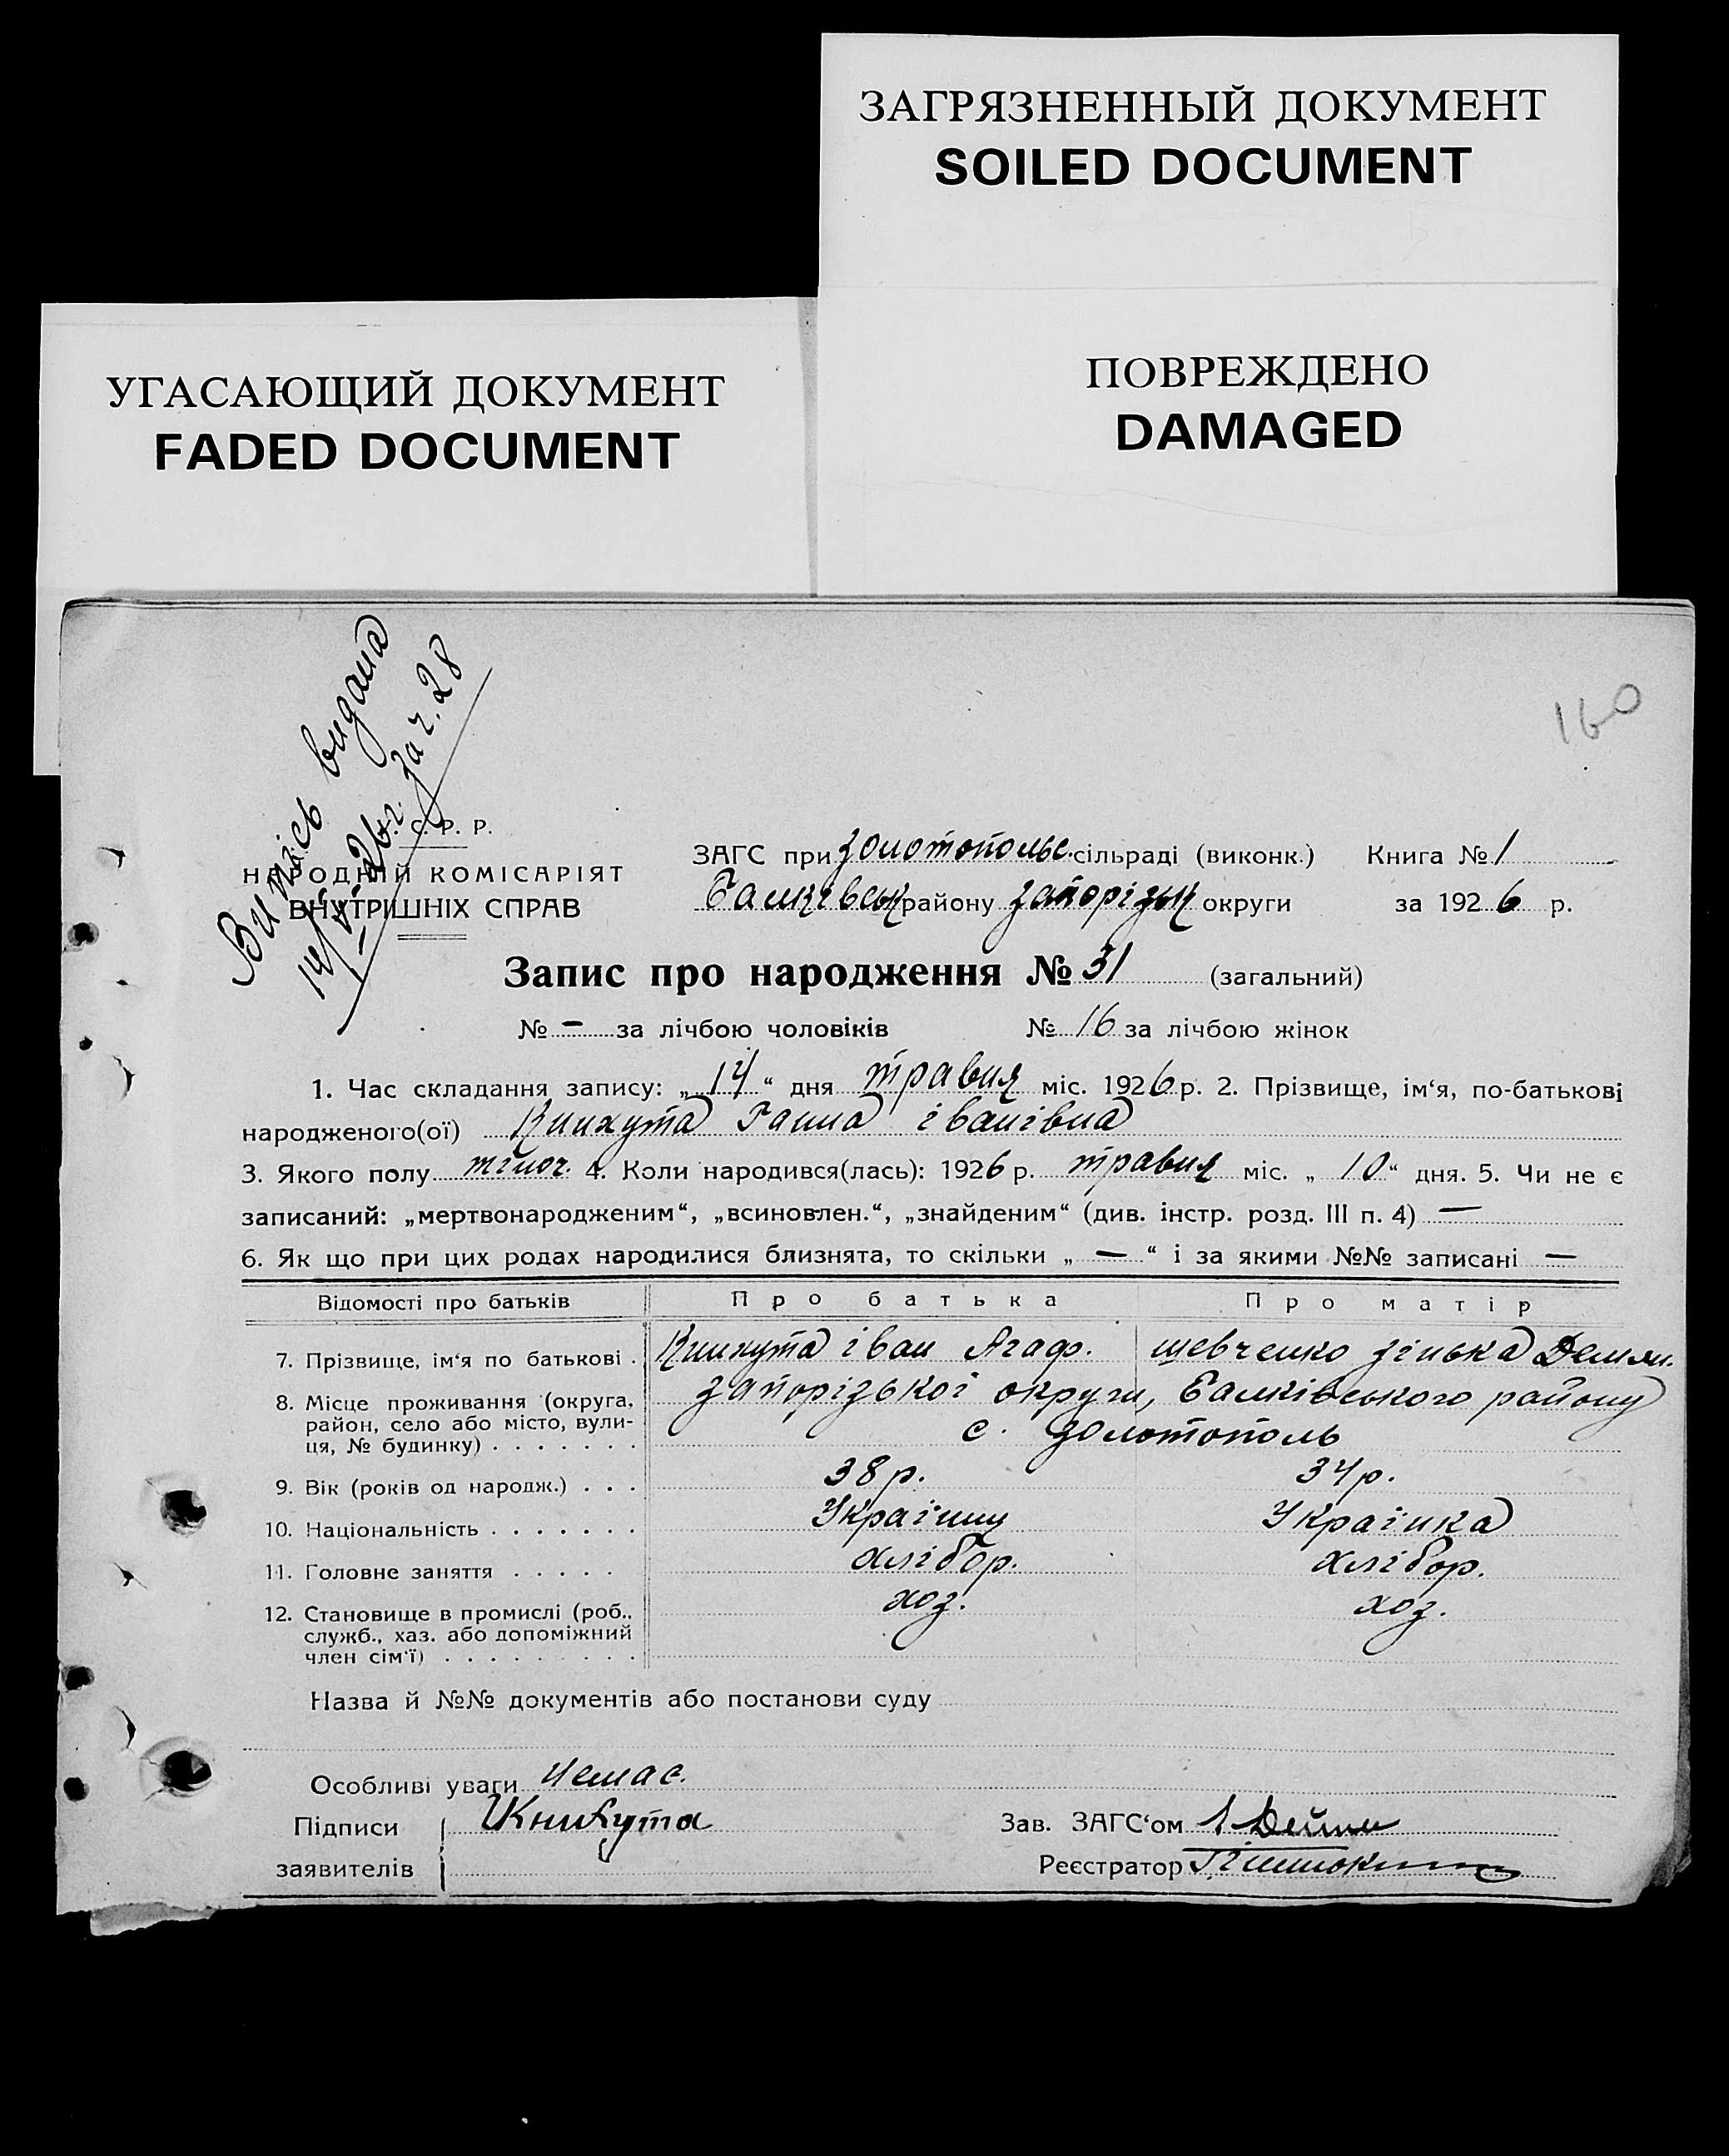 ЗАГРЯЗНЕННЫЙ ДОКУМЕНТ
SOILED DOCUMENT
ПОВРЕЖДЕНО
DAMAGED
УГАСАЮЩИЙ ДОКУМЕНТ
FADED DOCUMENT
160
Випись видана
14/V-26 г. за ч. 28
С. Р. Р.
НАРОДНІЙ КОМІСАРІЯТ
ВНУТРІШНІХ СПРАВ
ЗАГС при Золотопольс. сільраді (виконк.) Книга № 1
Балківськ району Запорізьк округи за 1926 р.
Запис про народження № 31 (загальний)
№ — за лічбою чоловіків № 16 за лічбою жінок
1. Час складання запису: „14“ дня травня міс. 1926 р. 2. Прізвище, ім‘я, по-батькові
народженого(ої) Книхута Ганна Іванівна
3. Якого полу жіноч. 4. Коли народився(лась): 1926 р. травня міс. „10“ дня. 5. Чи не є
записаний: „мертвонародженим“, „всиновлен.“, „знайденим“ (див. інстр. розд. III п. 4) —
6. Як що при цих родах народилися близнята, то скільки „ — “ і за якими №№ записані —
Відомості про батьків Про батька Про матір
7. Прізвище, ім‘я по батькові . Книхута Іван Агаф. Шевченко Зінька Демян.
8. Місце проживання (округа, Запорізької округи, Балківського району
район, село або місто, вули- с. Золотополь
ця, № будинку) . . . . . . .
9. Вік (років од народж.) . . . 38 р. 34 р.
10. Національність . . . . . . . Українц Українка
11. Головне заняття . . . . . хлібор. хлібор.
12. Становище в промислі (роб., хоз. хоз.
служб., хаз. або допоміжний
член сім‘ї) . . . . . . . . .
Назва й №№ документів або постанови суду
Особливі уваги Немає.
Підписи Книхута Зав. ЗАГС‘ом
заявителів Реєстратор